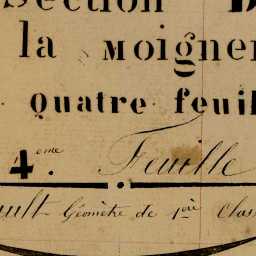 Section D
la Moigner
quatre feuil
4.eme Feuille
ault Géomètre de 1ère Class